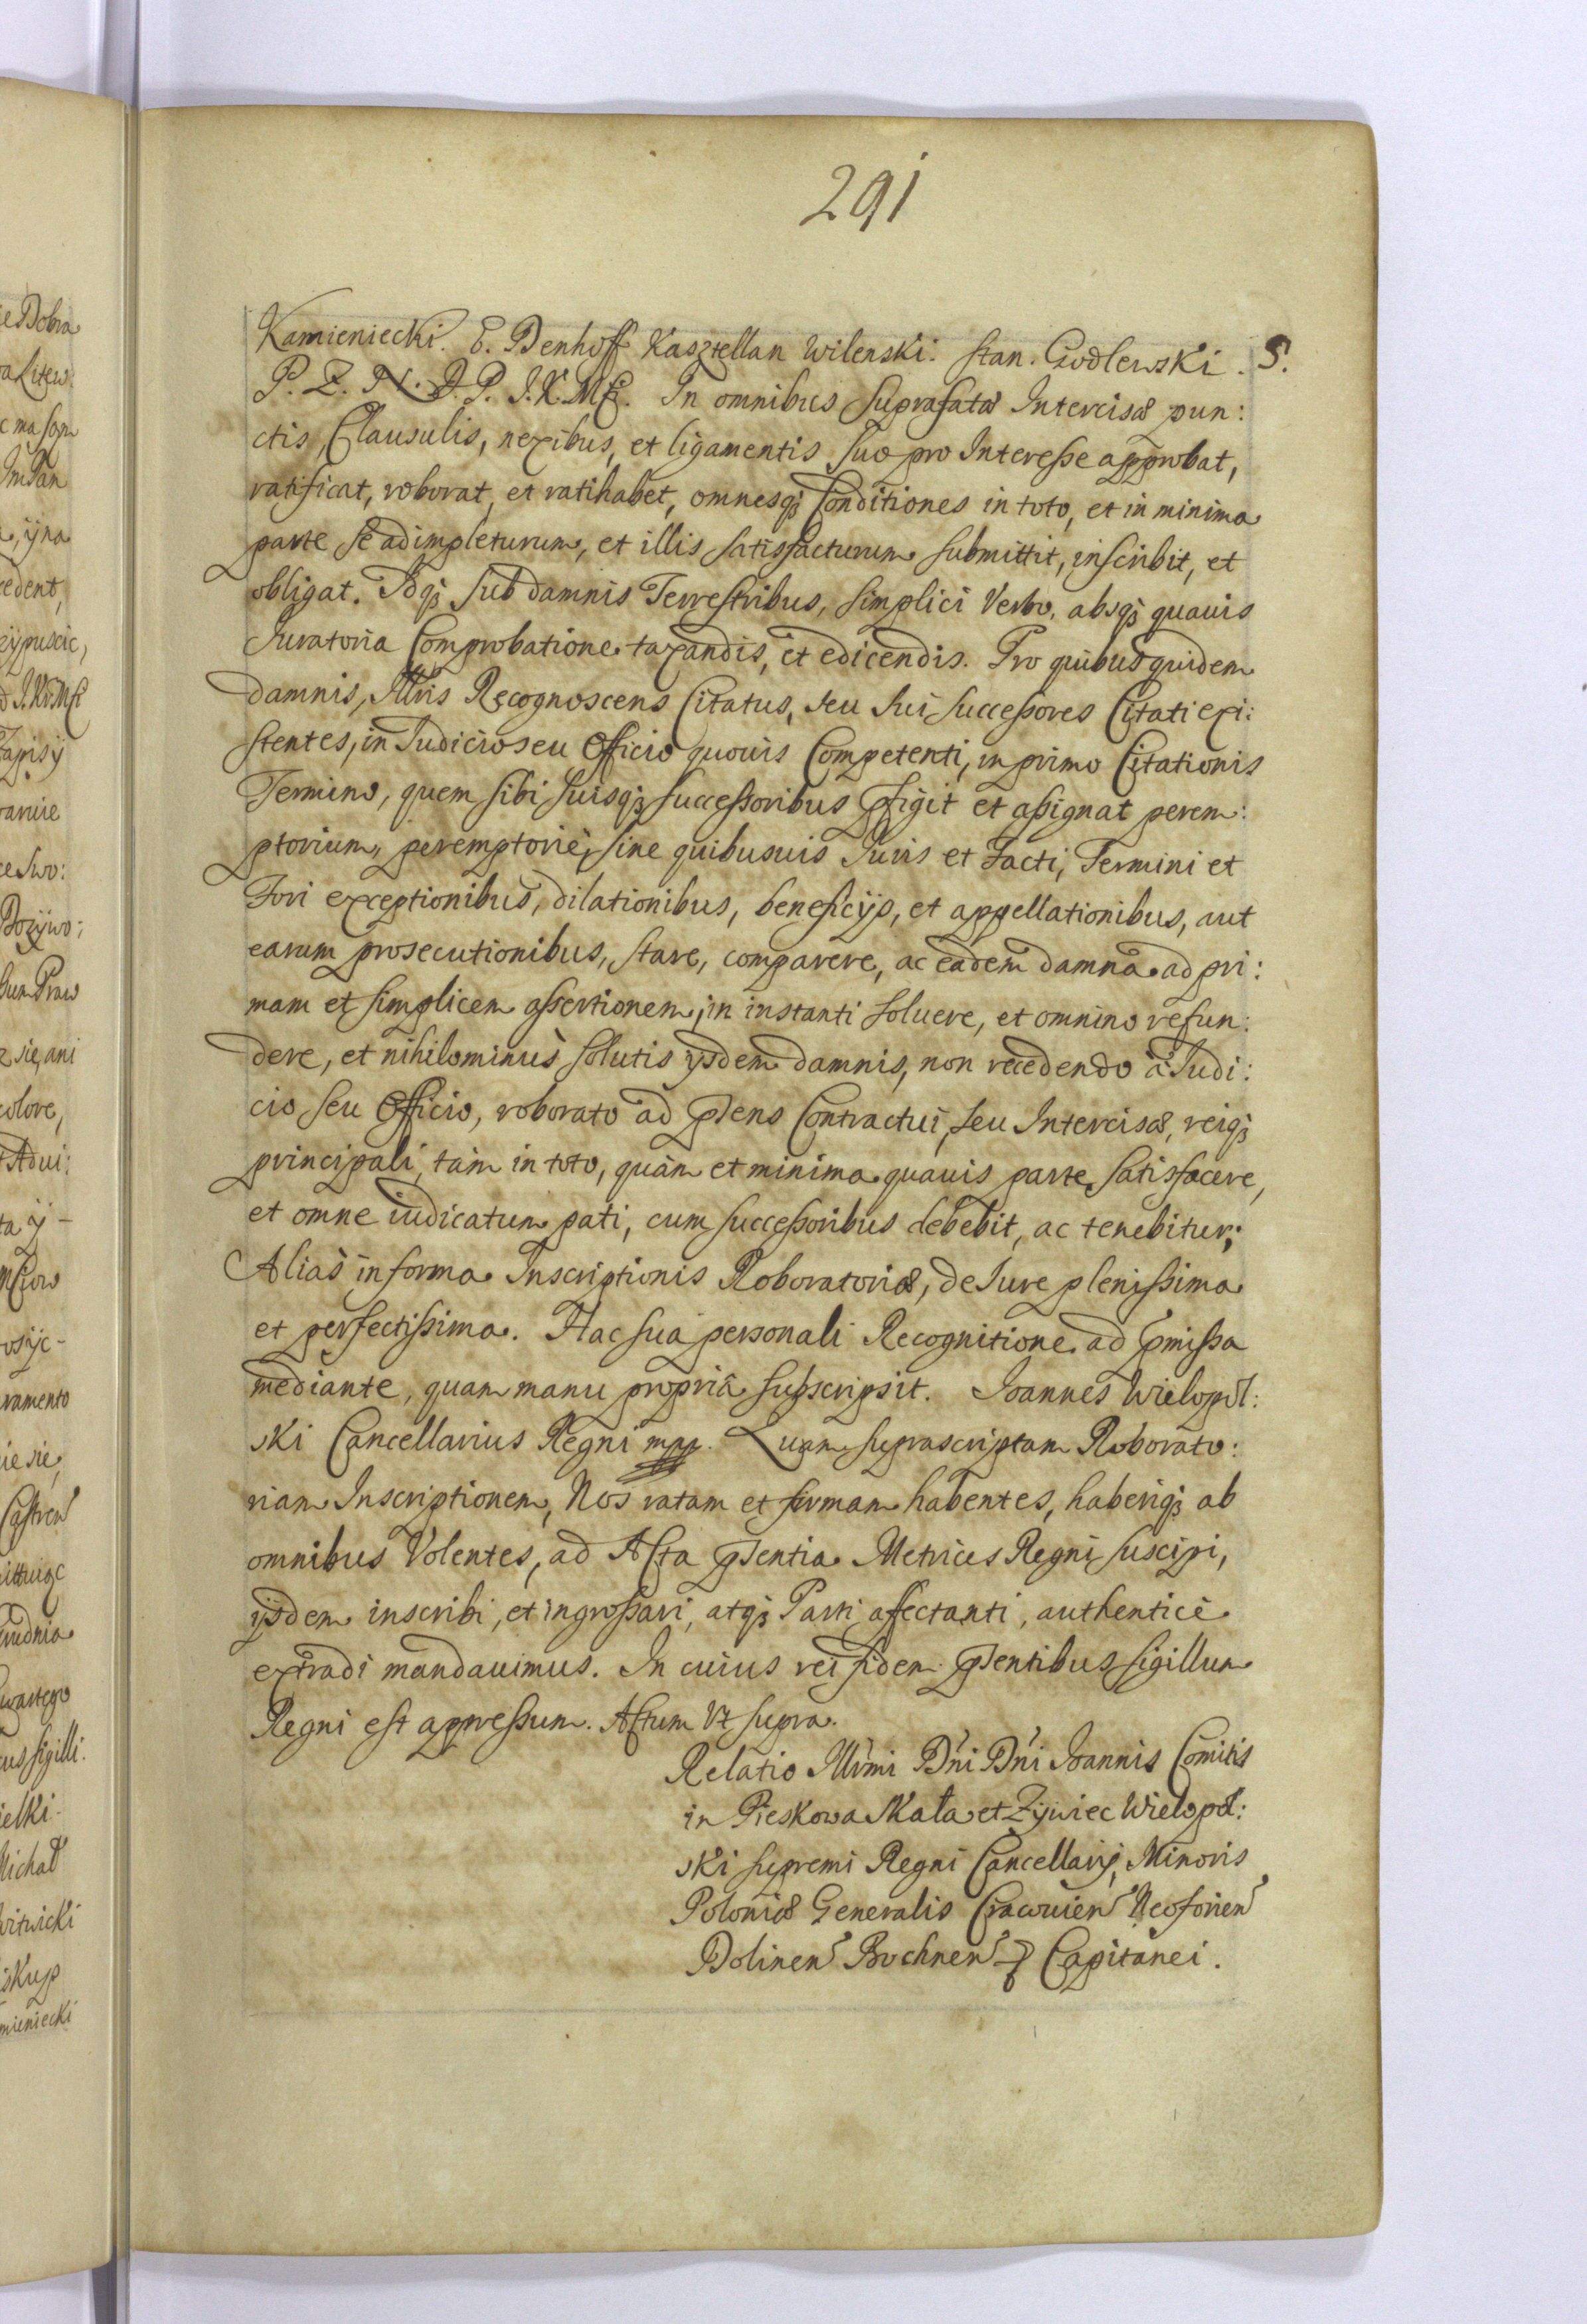 291
Kamieniecki. E. Denhoff Kasztellan Wilenski. Stan. Godlewski. S.
P. Z. N. D. P. J. K. Mći. In omnibus suprafatæ Intercisæ pun:
ctis, Clausulis, nexibus, et ligamentis suo pro Interesse approbat,
ratificat, roborat, et ratihabet, omnesqꝫ Conditiones in toto, et in minima
parte se adimpleturum, et illis satisfacturum submittit, inscribit, et
obligat. Idqꝫ sub damnis Terrestribus, simplici Verbo, absqꝫ quauis
Iuratoria Comprobatione taxandis, et edicendis. Pro quibus quidem
damnis, Illris Recognoscens Citatus, seu sui successores Citati exi:
stentes, in Iudicio seu Officio quouis Competenti, in primo Citationis
Termino, quem sibi suisqꝫ successoribus pfigit et assignat perem:
ptorium, peremptoriè, sine quibusuis Iuris et Facti, Termini et
Fori exceptionibus, dilationibus, beneficijs, et appellationibus, aut
earum prosecutionibus, stare, comparere, ac eadem damna ad pri:
mam et simplicem assertionem, in instanti soluere, et omnino refun:
dere, et nihilominùs solutis ijsdem damnis, non recedendo à Iudi:
cio seu Officio, roborato ad psens Contractui, seu Intercisæ, reiqꝫ
principali, tàm in toto, quàm et minima quauis parte satisfacere,
et omne iudicatum pati, cum successoribus debebit, ac tenebitur;
Aliàs in forma Inscriptionis Roboratoriæ, de Iure plenissima
et perfectissima. Hac sua personali Recognitione ad pmissa
mediante, quam manu propriâ subscripsit. Ioannes Wielopol:
ski Cancellarius Regni mpp. Quam suprascriptam Roborato:
riam Inscriptionem, Nos ratam et firmam habentes, haberiqꝫ ab
omnibus Volentes, ad Acta psentia Metrices Regni suscipi,
ijsdem inscribi, et ingrossari, atqꝫ Parti affectanti, authenticè
extradi mandauimus. In cuius rei fidem psentibus sigillum
Regni est appressum. Actum Vt supra.
Relatio Illrmi Dni Dni Ioannis Comitis
in Pieskowa Skała et Zÿwiec Wielopol:
ski supremi Regni Cancellarij, Minoris
Poloniæ Generalis Cracouien Neoforien
Dolinen Bochnen Capitanei.